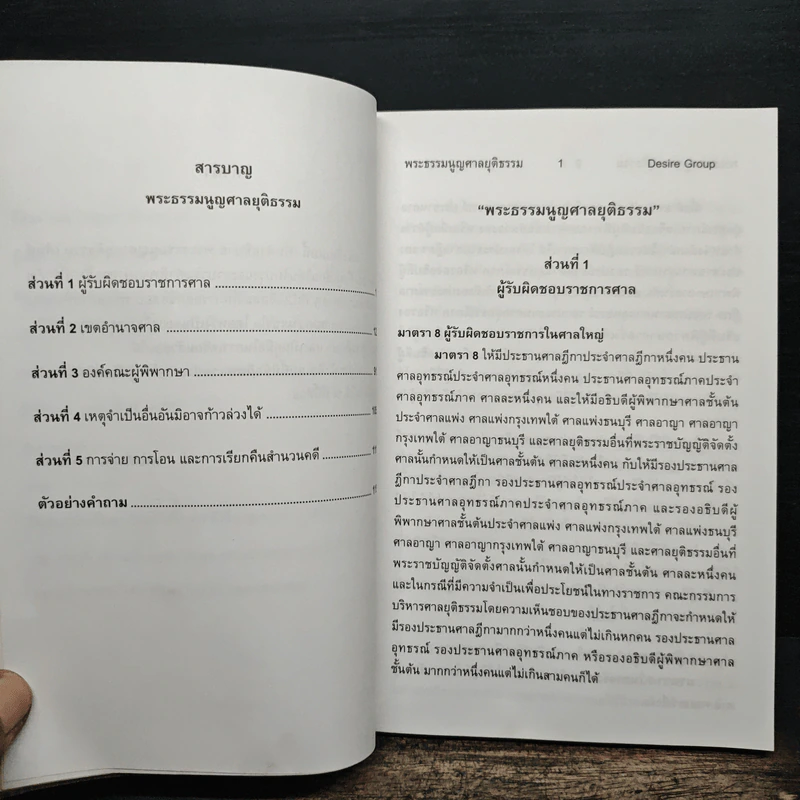 สารบาญ
พระธรรมนูญศาลยุติธรรม
ส่วนที่ 1 ผู้รับผิดชอบราชการศาล
ส่วนที่ 2 เขตอำนาจศาล
ส่วนที่ 3 องค์คณะผู้พิพากษา
ส่วนที่ 4 เหตุจำเป็นอื่นอันมิอาจก้าวล่วงได้
ส่วนที่ 5 การจ่าย การโอน และการเรียกคืนสำนวนคดี
ตัวอย่างคำถาม
พระธรรมนูญศาลยุติธรรม 1 Desire Group
“พระธรรมนูญศาลยุติธรรม”
ส่วนที่ 1
ผู้รับผิดชอบราชการศาล
มาตรา 8 ผู้รับผิดชอบราชการในศาลใหญ่
มาตรา 8 ให้มีประธานศาลฎีกาประจำศาลฎีกาหนึ่งคน ประธาน
ศาลอุทธรณ์ประจำศาลอุทธรณ์หนึ่งคน ประธานศาลอุทธรณ์ภาคประจำ
ศาลอุทธรณ์ภาค ศาลละหนึ่งคน และให้มีอธิบดีผู้พิพากษาศาลชั้นต้น
ประจำศาลแพ่ง ศาลแพ่งกรุงเทพใต้ ศาลแพ่งธนบุรี ศาลอาญา ศาลอาญา
กรุงเทพใต้ ศาลอาญาธนบุรี และศาลยุติธรรมอื่นที่พระราชบัญญัติจัดตั้ง
ศาลนั้นกำหนดให้เป็นศาลชั้นต้น ศาลละหนึ่งคน กับให้มีรองประธานศาล
ฎีกาประจำศาลฎีกา รองประธานศาลอุทธรณ์ประจำศาลอุทธรณ์ รอง
ประธานศาลอุทธรณ์ภาคประจำศาลอุทธรณ์ภาค และรองอธิบดีผู้
พิพากษาศาลชั้นต้นประจำศาลแพ่ง ศาลแพ่งกรุงเทพใต้ ศาลแพ่งธนบุรี
ศาลอาญา ศาลอาญากรุงเทพใต้ ศาลอาญาธนบุรี และศาลยุติธรรมอื่นที่
พระราชบัญญัติจัดตั้งศาลนั้นกำหนดให้เป็นศาลชั้นต้น ศาลละหนึ่งคน
และในกรณีที่มีความจำเป็นเพื่อประโยชน์ในทางราชการ คณะกรรมการ
บริหารศาลยุติธรรมโดยความเห็นชอบของประธานศาลฎีกาจะกำหนดให้
มีรองประธานศาลฎีกามากกว่าหนึ่งคนแต่ไม่เกินหกคน รองประธานศาล
อุทธรณ์ รองประธานศาลอุทธรณ์ภาค หรือรองอธิบดีผู้พิพากษาศาล
ชั้นต้น มากกว่าหนึ่งคนแต่ไม่เกินสามคนก็ได้